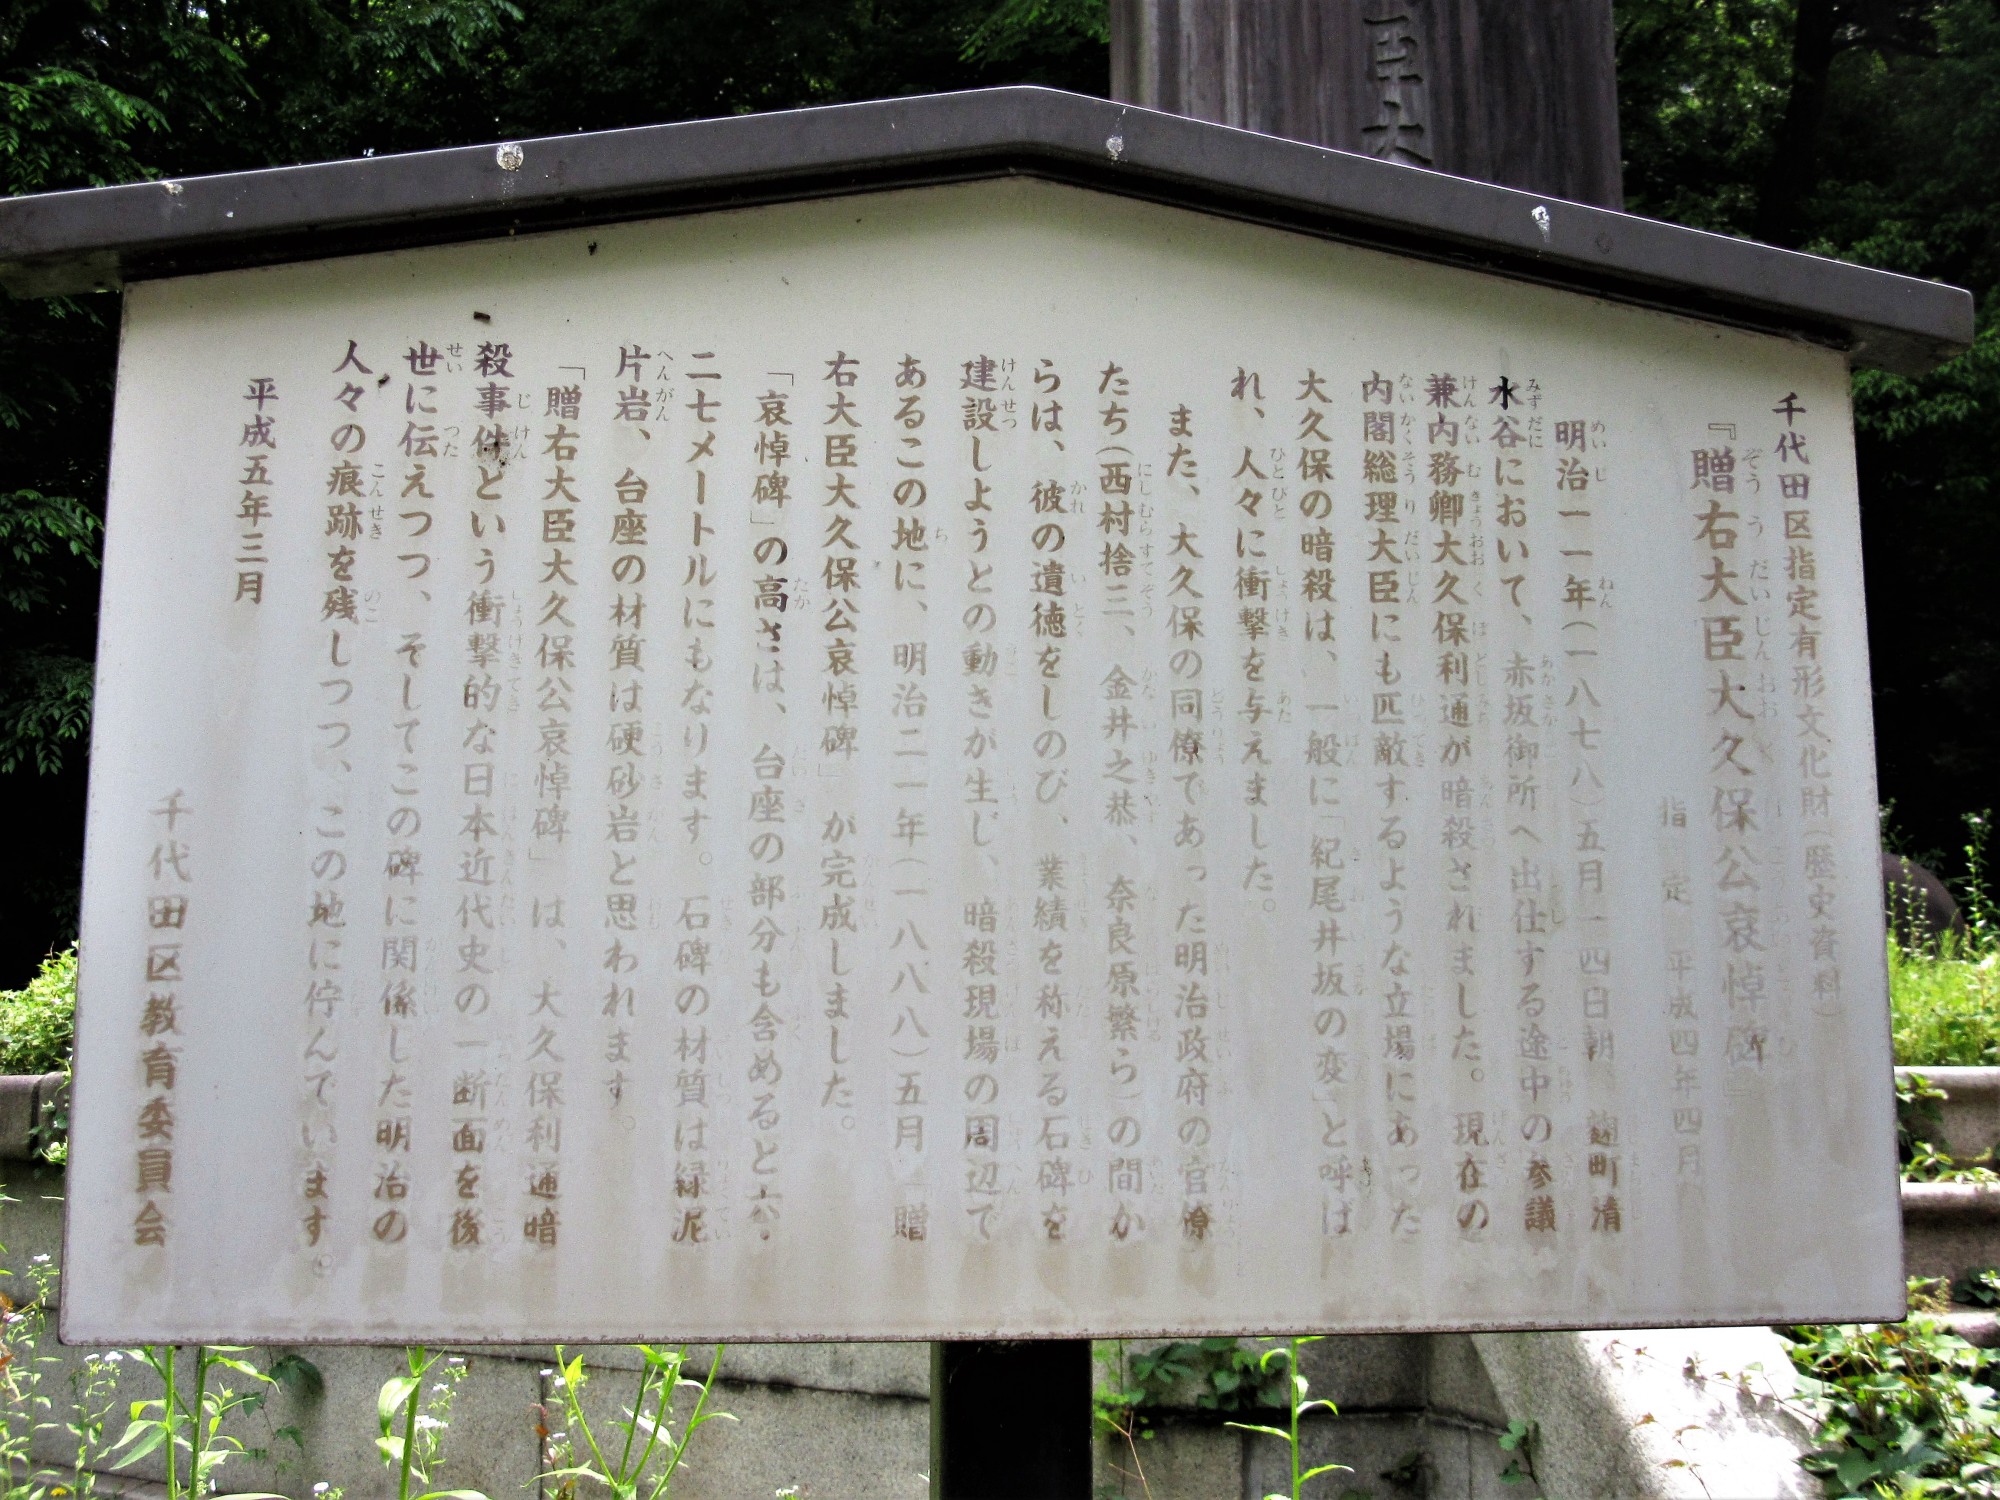 臣大
千代田区指定有形文化財(歴史資料)
『贈右大臣大久保公哀悼碑』
指定 平成四年四月
明治一一年(一八七八)五月一四日朝、麹町清
水谷において、赤坂御所へ出仕する途中の参議
兼内務卿大久保利通が暗殺されました。現在の
内閣総理大臣にも匹敵するような立場にあった
大久保の暗殺は、一般に「紀尾井坂の変」と呼ば
れ、人々に衝撃を与えました。
また、大久保の同僚であった明治政府の官僚
たち(西村捨三、金井之恭、奈良原繁ら)の間か
らは、彼の遺徳をしのび、業績を称える石碑を
建設しようとの動きが生じ、暗殺現場の周辺で
あるこの地に、明治二一年(一八八八)五月「贈
右大臣大久保公哀悼碑」が完成しました。
「哀悼碑」の高さは、台座の部分も含めると六・
二七メートルにもなります。石碑の材質は緑泥
片岩、台座の材質は硬砂岩と思われます。
「贈右大臣大久保公哀悼碑」は、大久保利通暗
殺事件という衝撃的な日本近代史の一断面を後
世に伝えつつ、そしてこの碑に関係した明治の
人々の痕跡を残しつつ、この地に佇んでいます。
平成五年三月
千代田区教育委員会